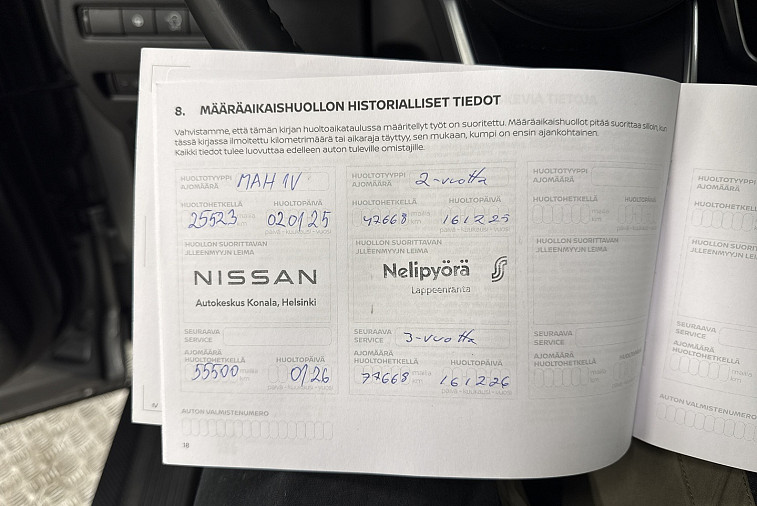 8. MÄÄRÄAIKAISHUOLLON HISTORIALLISET TIEDOT
Vahvistamme, että tämän kirjan huoltoaikataulussa määritellyt työt on suoritettu. Määräaikaishuollot pitää suorittaa silloin, kun
tässä kirjassa ilmoitettu kilometrimäärä tai aikaraja täyttyy, sen mukaan, kumpi on ensin ajankohtainen.
Kaikki tiedot tulee luovuttaa edelleen auton tuleville omistajille.
HUOLTOTYYPPI
AJOMÄÄRÄ
MAH 1V
HUOLTOHETKELLÄ HUOLTOPÄIVÄ
25523 mailia km 020125
päivä - kuukausi - vuosi
HUOLLON SUORITTAVAN
JLLEENMYYJÄN LEIMA
NISSAN
Autokeskus Konala, Helsinki
SEURAAVA
SERVICE
AJOMÄÄRÄ
HUOLTOHETKELLÄ HUOLTOPÄIVÄ
55500 mailia km 0126
päivä - kuukausi - vuosi
HUOLTOTYYPPI
AJOMÄÄRÄ
2-vuotta
HUOLTOHETKELLÄ HUOLTOPÄIVÄ
47668 mailia km 161225
päivä - kuukausi - vuosi
HUOLLON SUORITTAVAN
JLLEENMYYJÄN LEIMA
Nelipyörä
Lappeenranta
SEURAAVA
SERVICE
3-vuotta
AJOMÄÄRÄ
HUOLTOHETKELLÄ HUOLTOPÄIVÄ
77668 mailia km 161226
päivä - kuukausi - vuosi
HUOLTOTYYPPI
AJOMÄÄRÄ
HUOLTOHETKELLÄ
HUOLLON SUORITTAVAN
JLLEENMYYJÄN LEIMA
SEURAAVA
SERVICE
AJOMÄÄRÄ
HUOLTOHETKELLÄ
AUTON VALMISTENUMERO
18
HUOLTOTYYPPI
AJOMÄÄRÄ
SEURAAVA
SERVICE
AJOMÄÄRÄ
AUTON VALMISTENUMERO